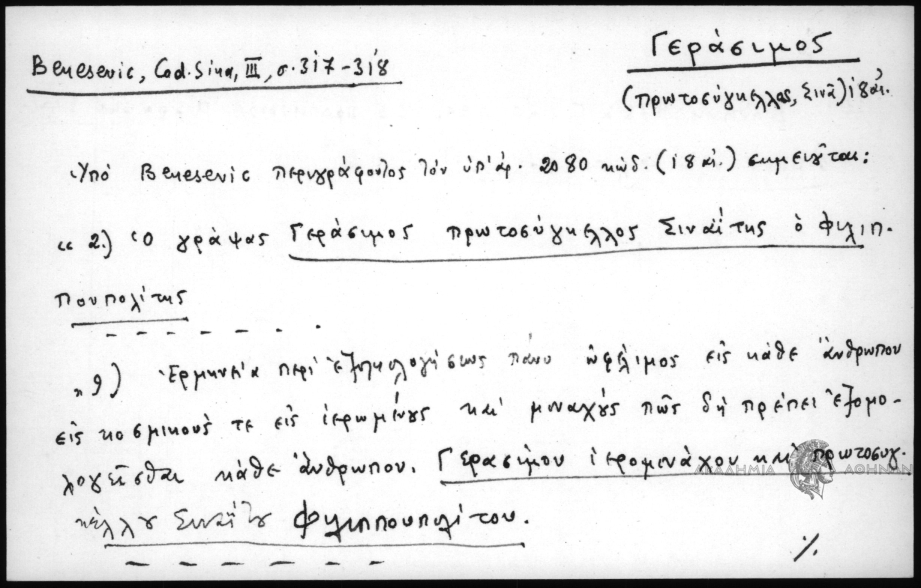 Γεράσιμος
Benesevic, Cod. Sina, III, σ. 317-318
(πρωτοσύγκελλος, Σινᾶ) ι8 αἰ.
Ὑπό Benesevic περιγράφοντος τόν ὑπ' ἀρ. 2080 κώδ. (ι8 αἰ.) σημειοῦται:
« 2.) Ὁ γράψας Γεράσιμος πρωτοσύγκελλος Σιναΐτης ὁ Φιλιπ-
πουπολίτης
" 9) Ἑρμηνεία περί ἐξομολογήσεως πάνυ ὠφέλιμος εἰς κάθε ἄνθρωπον
εἰς κοσμικούς τε εἰς ἱερωμένους καί μοναχούς πῶς δή πρέπει ἐξομο-
λογεῖσθαι κάθε ἄνθρωπον. Γερασίμου ἱερομονάχου καί πρωτοσυγ-
κέλλου Σιναΐτου Φιλιππουπολίτου.
ΑΚΑΔΗΜΙΑ ΑΘΗΝΩΝ
%